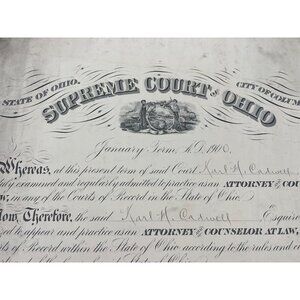 STATE OF OHIO.
CITY OF COLUM
SUPREME COURT OF OHIO
January Term, A.D. 1900.
Whereas, at this present term of said Court Karl H. Cadwell
ly examined and regularly admitted to practice as an ATTORNEY AND COU
w, in any of the Courts of Record in the State of Ohio.
Now, Therefore, the said Karl H. Cadwell Esquire
ed to appear and practice as an ATTORNEY AND COUNSELOR AT LAW,
rts of Record within the State of Ohio according to the rules and cu